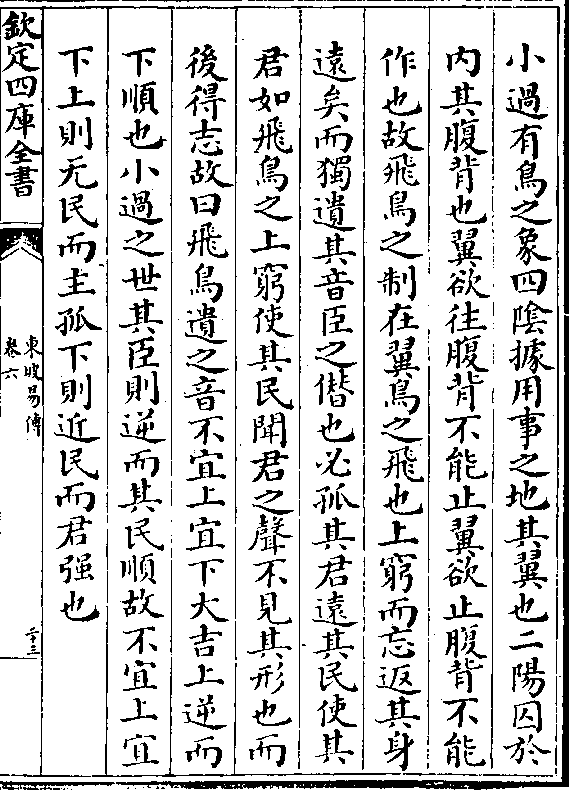 小過有鳥之象四隂據用事之地其翼也二陽囚於
内其腹背也翼欲往腹背不能止翼欲止腹背不能
作也故飛鳥之制在翼鳥之飛也上窮而忘返其身
遠矣而獨遺其音臣之僭也必孤其君遠其民使其
君如飛鳥之上窮使其民聞君之聲不見其形也而
後得志故曰飛鳥遺之音不宜上宜下大吉上逆而
下順也小過之世其臣則逆而其民順故不宜上宜
下上則无民而主孤下則近民而君强也
欽定四庫全書
東坡易傳
卷六
二十三